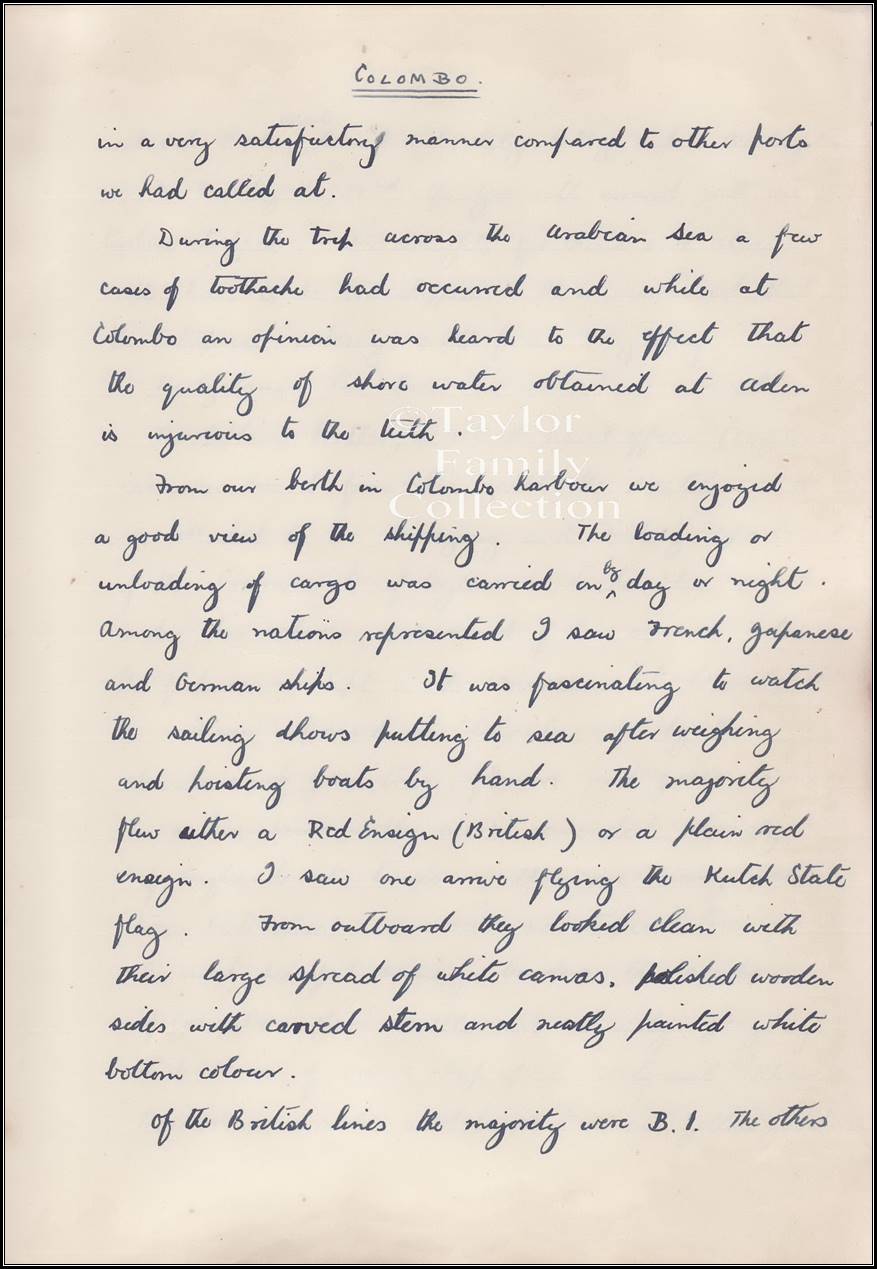 COLOMBO.
in a very satisfactory manner compared to other ports
we had called at.
During the trip across the Arabian Sea a few
cases of toothache had occurred and while at
Colombo an opinion was heard to the effect that
the quality of shore water obtained at Aden
is injurious to the teeth.
©Taylor
Family
Collection
From our berth in Colombo harbour we enjoyed
a good view of the shipping. The loading or
unloading of cargo was carried on by day or night.
Among the nations represented I saw French, Japanese
and German ships. It was fascinating to watch
the sailing dhows putting to sea after weighing
and hoisting boats by hand. The majority
flew either a Red Ensign (British) or a plain red
ensign. I saw one arrive flying the Kutch State
flag. From outboard they looked clean with
their large spread of white canvas, polished wooden
sides with carved stern and neatly painted white
bottom colour.
Of the British lines the majority were B.I. The others